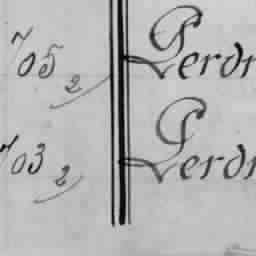 705 2 Perdr
703 2 Perdr